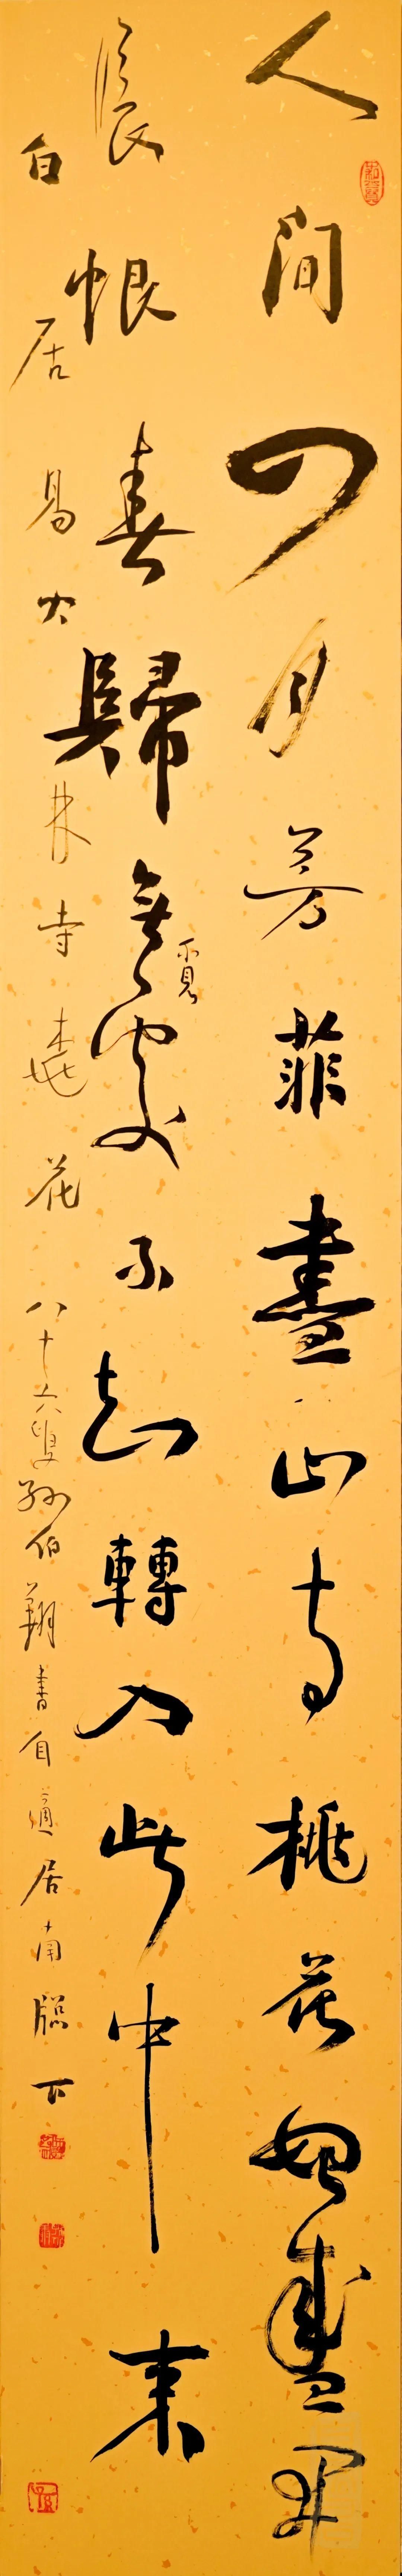 人間四月芳菲盡山寺桃花始盛開
長恨春歸無覓處不知轉入此中來
白居易大林寺桃花 八十六叟孫伯翔書自適居南牕下